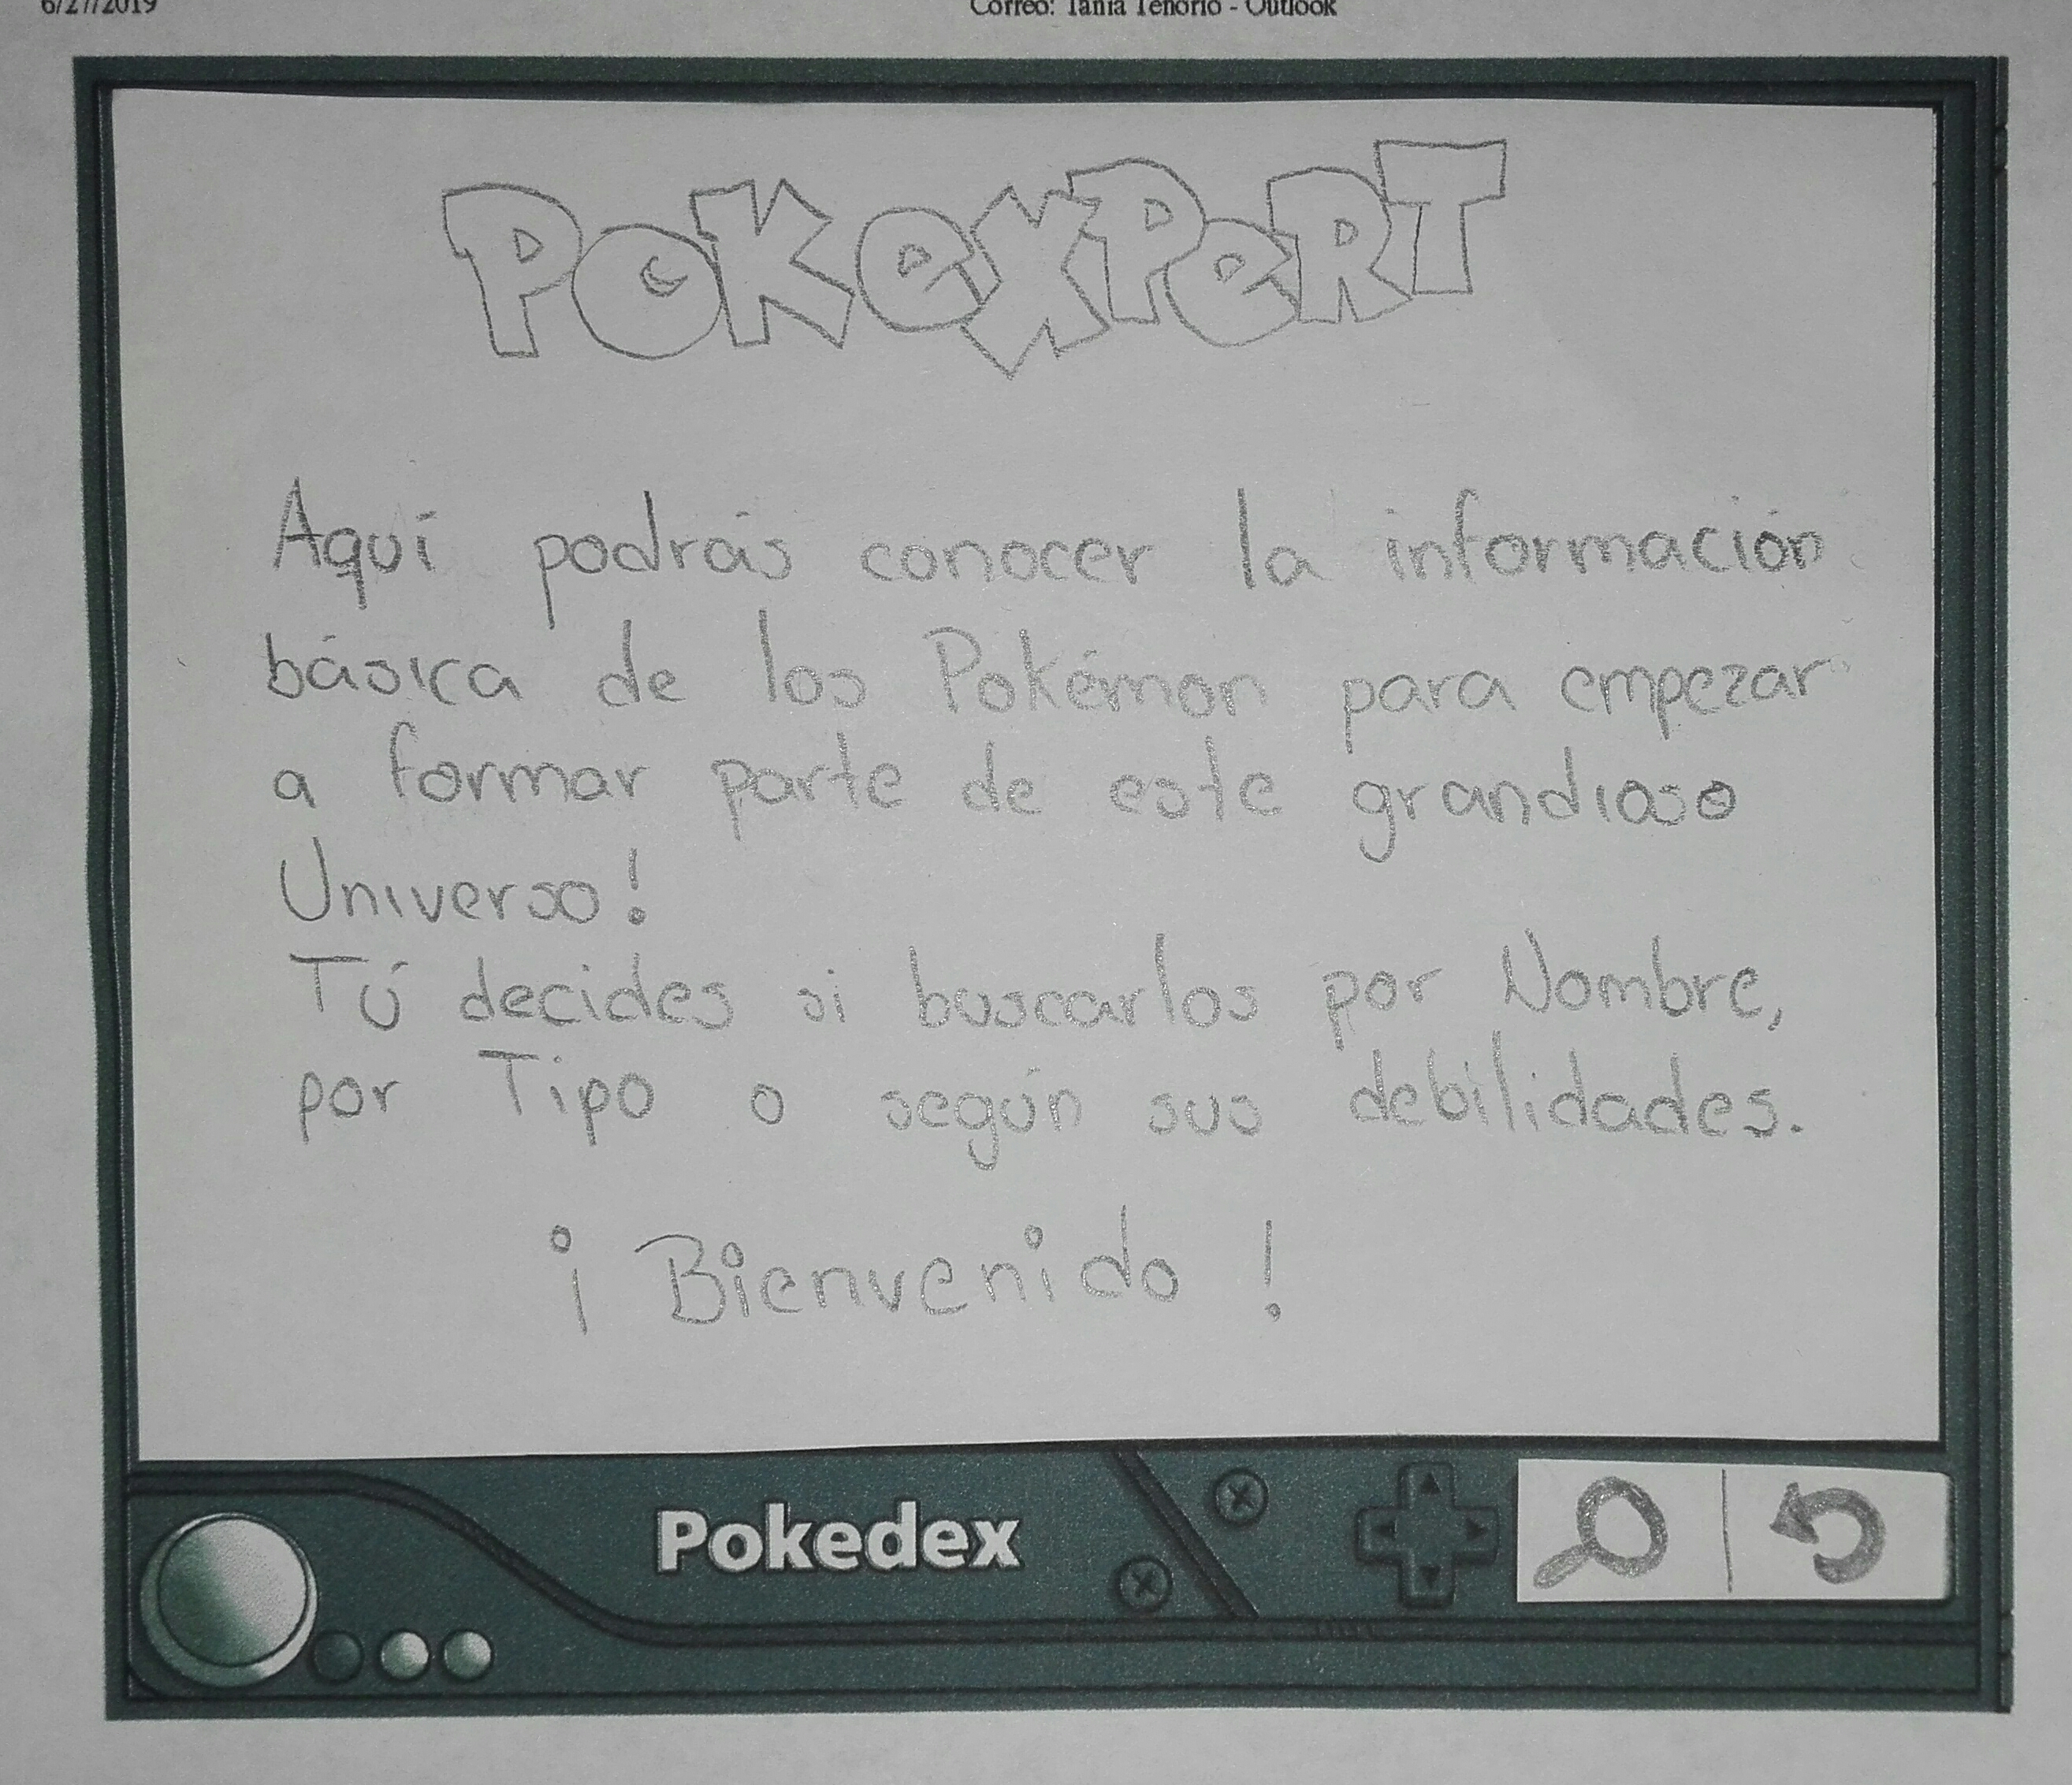 6/27/2019 Correo: Tania Tenorio - Outlook
POKEXPERT
Aquí podrás conocer la información
básica de los Pokémon para empezar
a formar parte de este grandioso
Universo!
Tú decides si buscarlos por Nombre,
por Tipo o según sus debilidades.
¡Bienvenido!
Pokedex